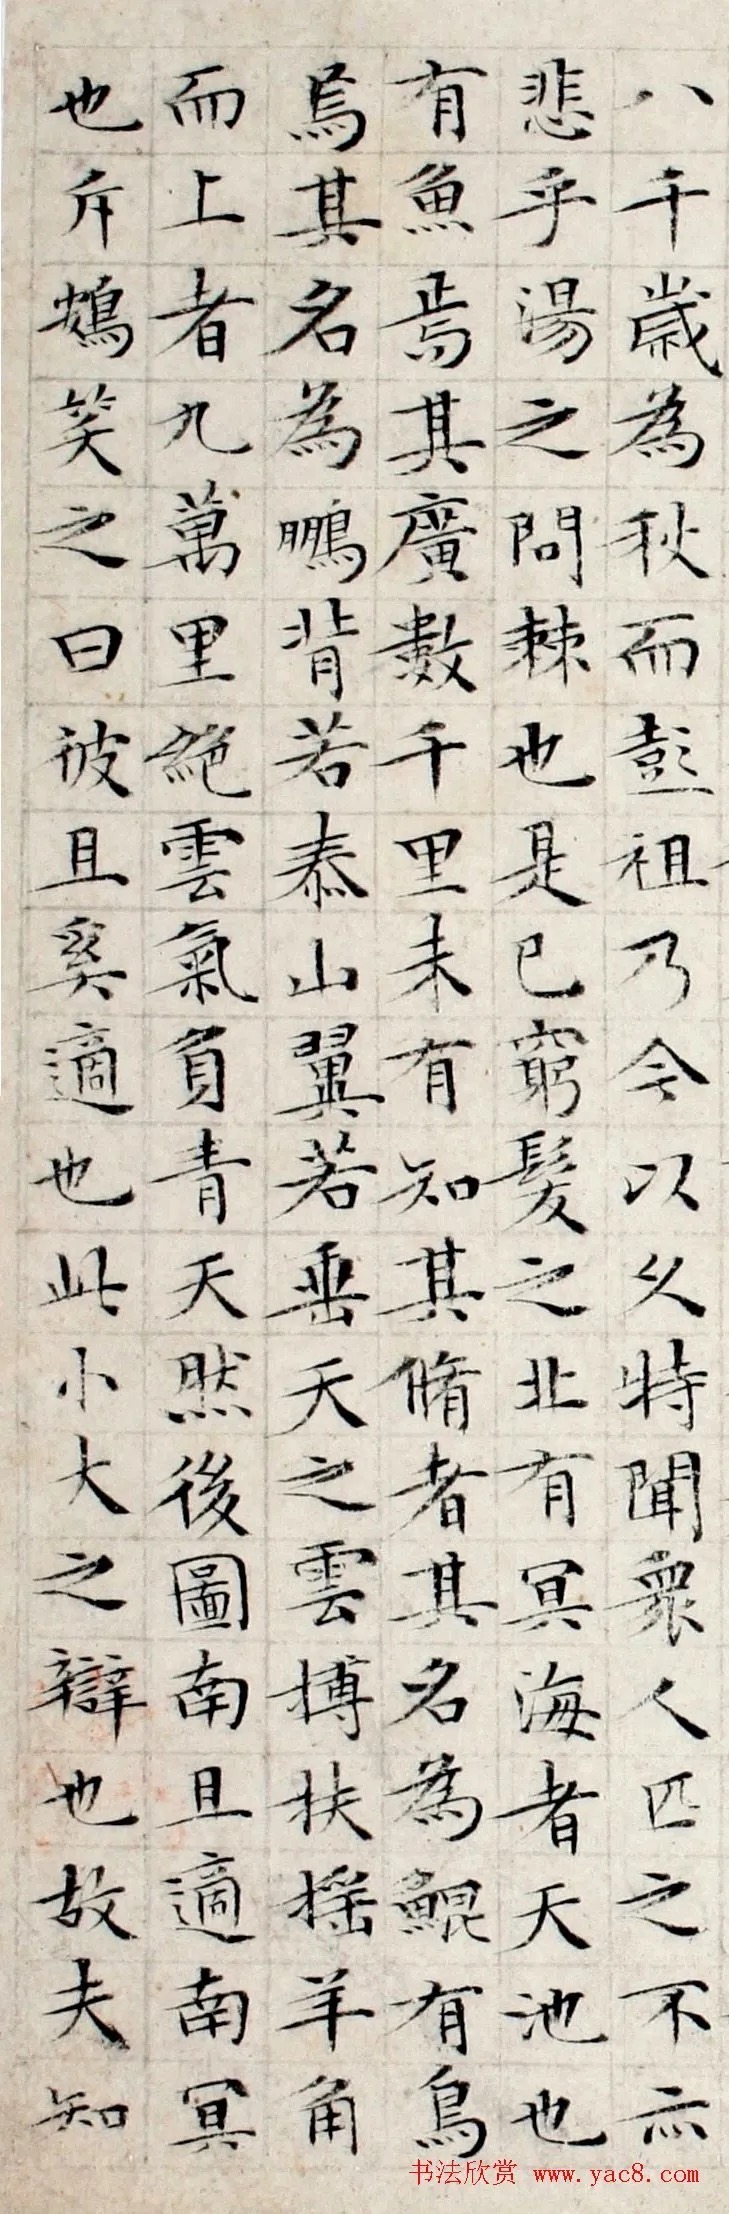 八千歲為秋而彭祖乃今以久特聞眾人匹之不亦
悲乎湯之問棘也是已窮髮之北有冥海者天池也
有魚焉其廣數千里未有知其脩者其名為鯤有鳥
焉其名為鵬背若泰山翼若垂天之雲搏扶搖羊角
而上者九萬里絕雲氣負青天然後圖南且適南冥
也斥鴳笑之曰彼且奚適也此小大之辯也故夫知
书法欣赏 www.yac8.com